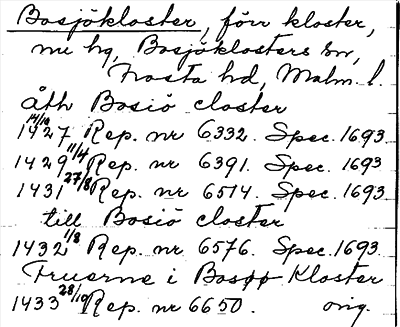 Bosjökloster, förr kloster,
nu hg, Bosjöklosters sn,
Frosta hd, Malm. l.
åth Bosiö closter
1427 14/10 Rep. nr 6332. Spec. 1693
1429 11/4 Rep. nr 6391. Spec. 1693
1431 27/8 Rep. nr 6514. Spec. 1693
till Bosiö closter
1432 11/8 Rep. nr 6576. Spec. 1693
Fruerne i Bosøø Kloster
1433 28/10 Rep. nr 6650. orig.